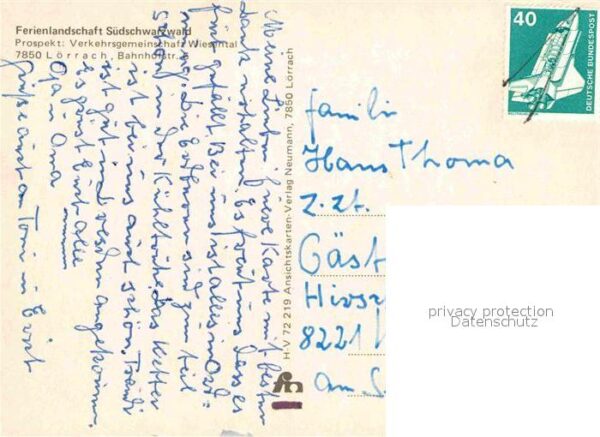 Ferienlandschaft Südschwarzwald
Prospekt: Verkehrsgemeinschaft Wiesental
7850 Lörrach, Bahnhofstr.
Meine Lieben! eure Karte mit bestem
Dank erhalten. Es freut uns dass es
euch gefällt. Bei uns ist alles in Ord-
nung. Die Erdbeeren sind zum teil
schon in der Kühltruhe, das Wetter
ist bei uns auch schön. Trudi
ist gut und angekommen.
Es grüsst Euch alle
Opa Oma
Grüße auch an Toni u.
H-V 72 219 Ansichtskarten-Verlag Neumann, 7850 Lörrach
40
DEUTSCHE BUNDESPOST
Familie
Hans Thoma
z.zt.
Gäst
Hirsc
8221
am
privacy protection
Datenschutz